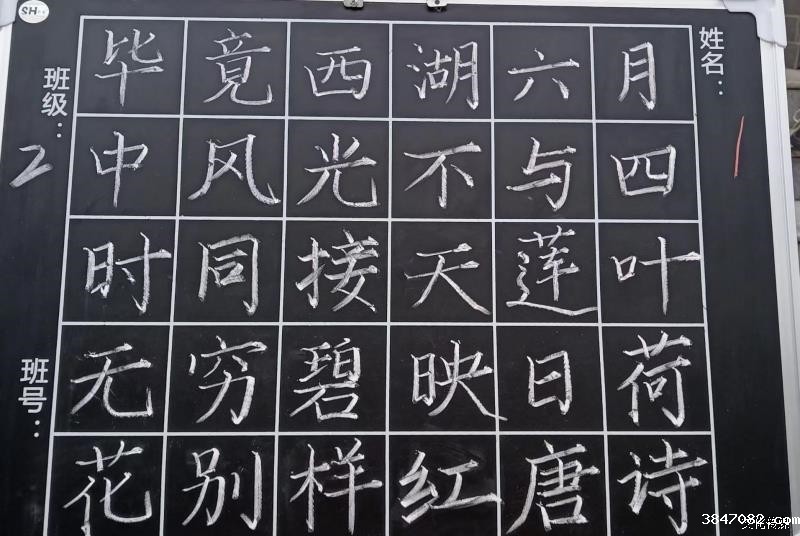 SH
姓名：
1
班级：
2
班号：
毕竟西湖六月
中风光不与四
时同接天莲叶
无穷碧映日荷
花别样红唐诗
3847082.com